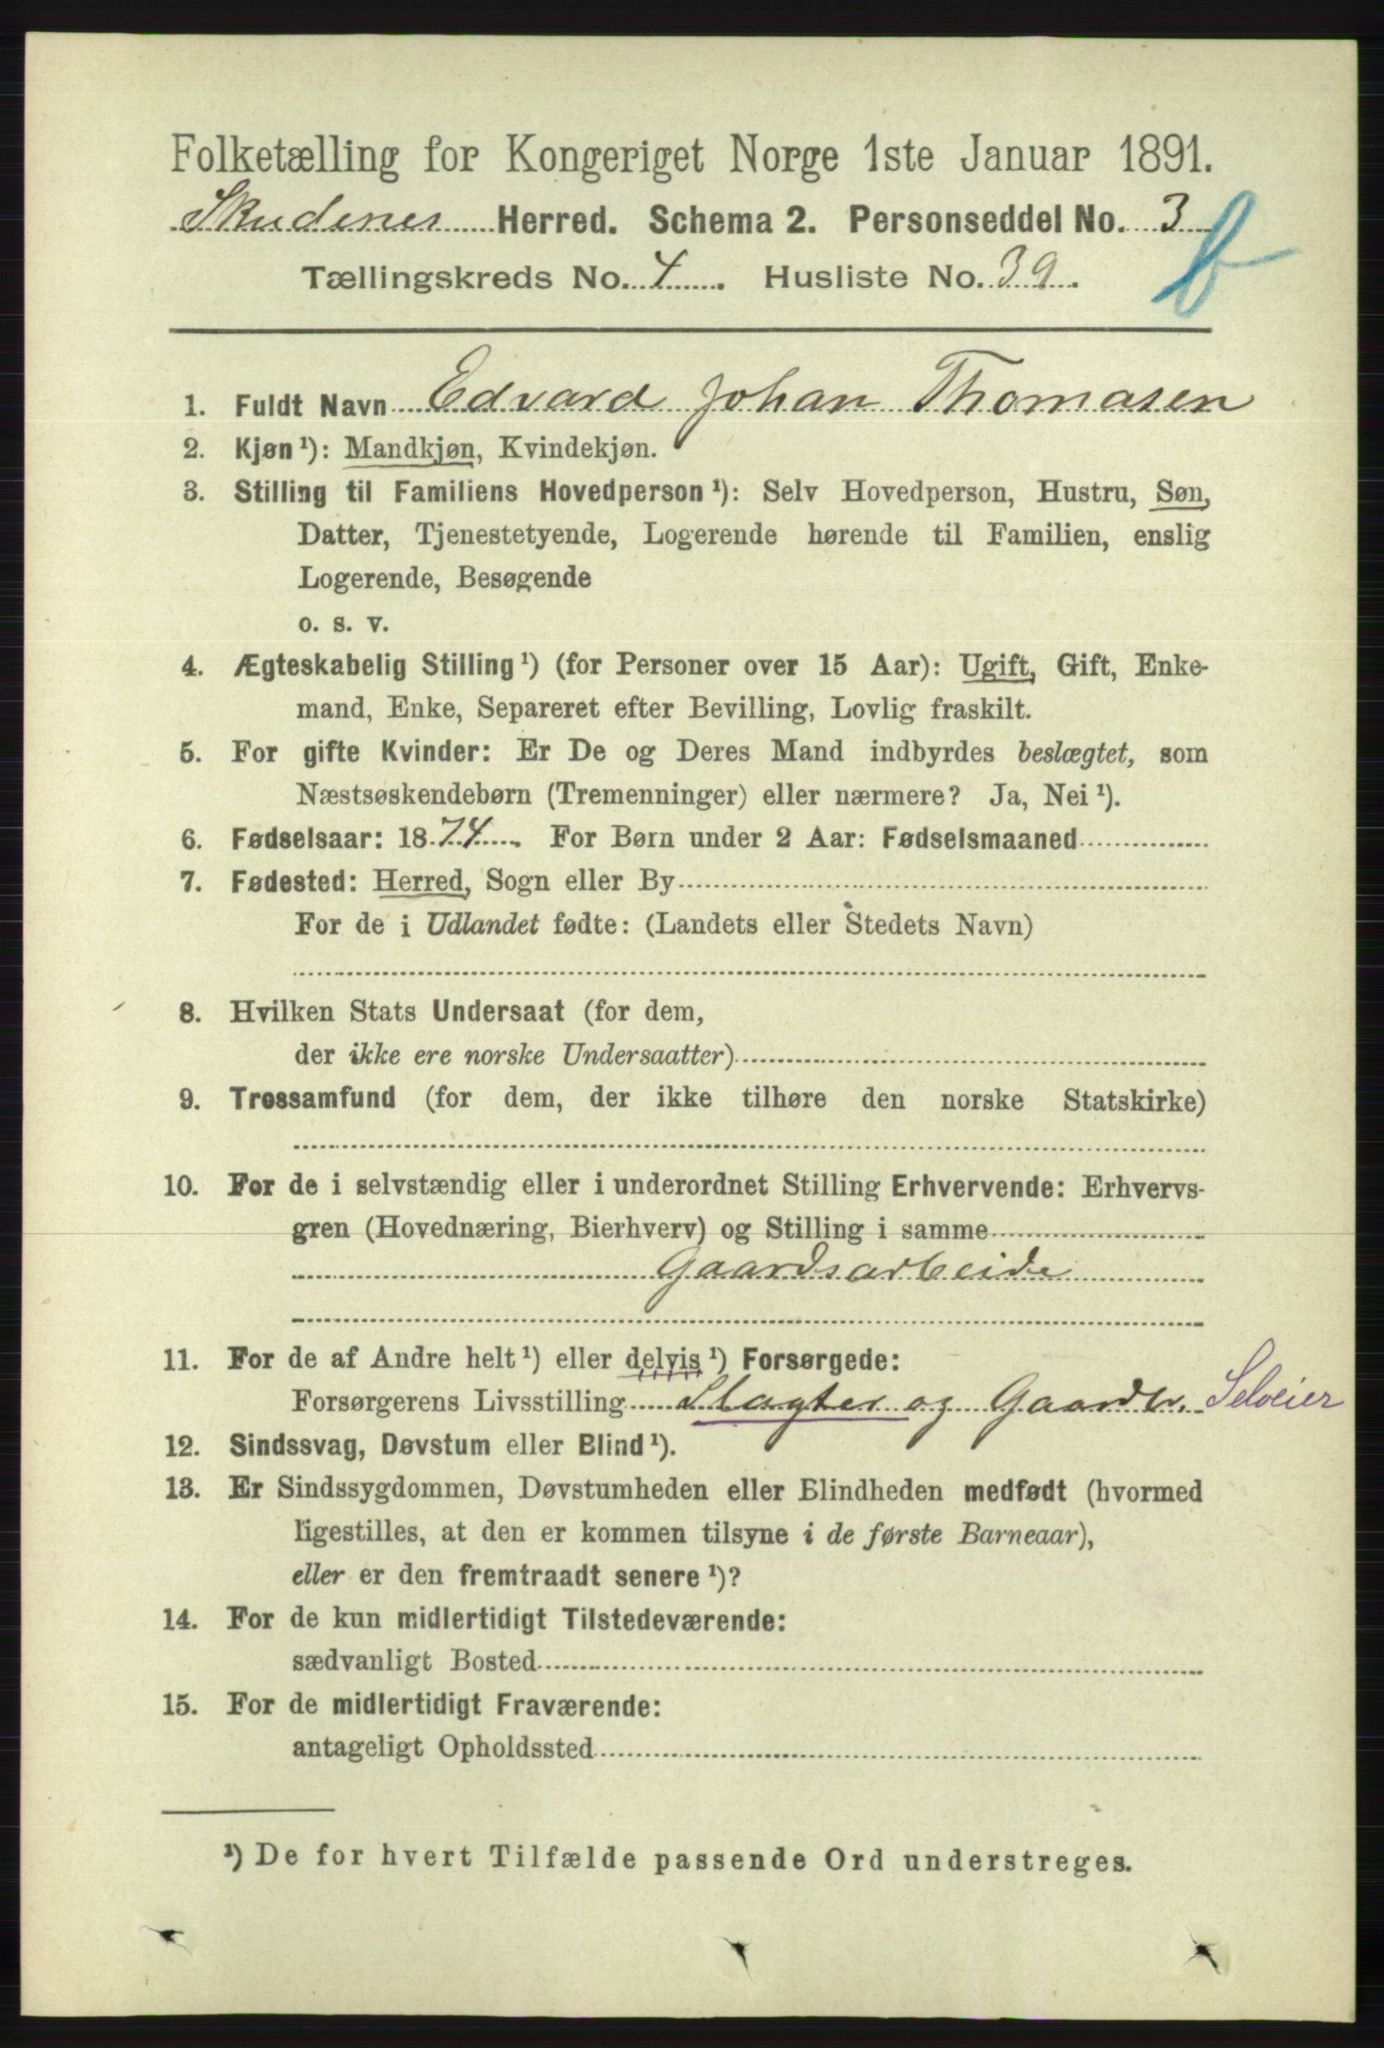 Folketælling for Kongeriget Norge 1ste Januar 1891.
Skudenes Herred. Schema 2. Personseddel No. 3
b
Tællingskreds No. 4. Husliste No. 39.
1. Fuldt Navn Edvard Johan Thomasen
2. Kjøn¹): Mandkjøn, Kvindekjøn.
3. Stilling til Familiens Hovedperson¹): Selv Hovedperson, Hustru, Søn,
Datter, Tjenestetyende, Logerende hørende til Familien, enslig
Logerende, Besøgende
o. s. v.
4. Ægteskabelig Stilling¹) (for Personer over 15 Aar): Ugift, Gift, Enke-
mand, Enke, Separeret efter Bevilling, Lovlig fraskilt.
5. For gifte Kvinder: Er De og Deres Mand indbyrdes beslægtet, som
Næstsøskendebørn (Tremenninger) eller nærmere? Ja, Nei¹).
6. Fødselsaar: 1874. For Børn under 2 Aar: Fødselsmaaned
7. Fødested: Herred, Sogn eller By
For de i Udlandet fødte: (Landets eller Stedets Navn)
8. Hvilken Stats Undersaat (for dem,
der ikke ere norske Undersaatter)
9. Trossamfund (for dem, der ikke tilhøre den norske Statskirke)
10. For de i selvstændig eller i underordnet Stilling Erhvervende: Erhvervs-
gren (Hovednæring, Bierhverv) og Stilling i samme
Gaardsarbeide
11. For de af Andre helt¹) eller delvis¹) Forsørgede:
Forsørgerens Livsstilling Slagter og Gaardbr. Selveier
12. Sindssvag, Døvstum eller Blind¹).
13. Er Sindssygdommen, Døvstumheden eller Blindheden medfødt (hvormed
ligestilles, at den er kommen tilsyne i de første Barneaar),
eller er den fremtraadt senere¹)?
14. For de kun midlertidigt Tilstedeværende:
sædvanligt Bosted
15. For de midlertidigt Fraværende:
antageligt Opholdssted
¹) De for hvert Tilfælde passende Ord understreges.